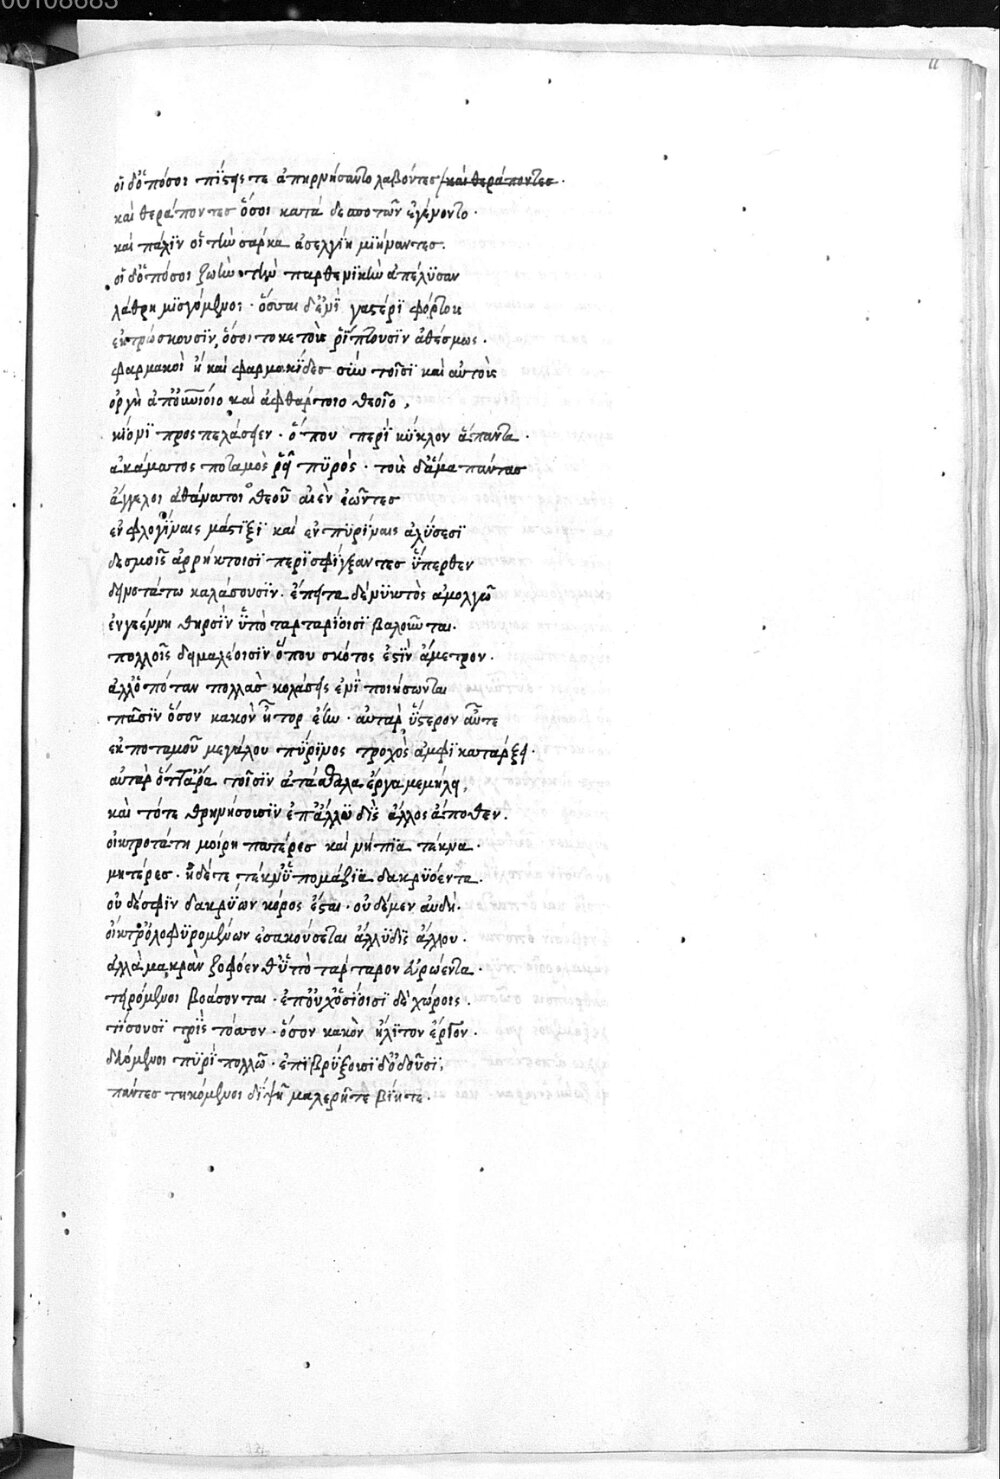 οἱ δ' ὁπόσοι πίστεις τε ἀπηρνήσαντο λαβόντες καὶ θεράποντες.
καὶ θεράποντες ὅσοι κατὰ δεσποτῶν ἐγένοντο.
καὶ πάλιν οἳ τὴν σάρκα ἀσελγείη μιήμαντες.
οἱ δ' ὁπόσοι ζώνην τὴν παρθενικὴν ἀπέλυσαν
λάθρη μισγόμενοι. ὅσσαι δ' ἐνὶ γαστέρι φόρτους
ἐκτρώσκουσιν, ὅσοι τοκετοὺς ῥίπτουσιν ἀθέσμως.
φαρμακοὶ ἢ καὶ φαρμακίδες σὺν τοῖσι καὶ αὐτοὺς
ὀργὴ ἀπ' οὐρανίοιο καὶ ἀφθάρτοιο θεοῖο,
κίονι προσπελάσειεν. ὅπου περὶ κύκλον ἅπαντα.
ἀκάματος ποταμὸς ῥεῖ πυρὸς. τοὺς δ' ἅμα πάντας
ἄγγελοι ἀθάνατοι θεοῦ αἰὲν ἐῶντες
ἐν φλογίναις μάστιξι καὶ ἐν πυρίναις ἁλύσεσι
δεσμοῖς ἀρρήκτοισι περισφίγξαντες ὕπερθεν
δεινοτάτω καλάσουσιν. ἔπειτα δὲ νυκτὸς ἀμολγῶ
ἐν γεέννη θηρσὶν ὑπὸ ταρταρίοισι βαλοῦνται.
πολλοῖς δειμαλέοισιν ὅπου σκότος ἐστὶν ἄμετρον.
ἀλλ' ὁπόταν πολλὰς κολάσεις ἐνιποιήσωνται
πᾶσιν ὅσον κακὸν ἦτορ ἔην. αὐτὰρ ὕστερον αὖτε
ἐκ ποταμοῦ μεγάλου πύρινος τροχὸς ἀμφικατάρξει.
αὐτὰρ ὅτ' ἄρα τοῖσιν ἀτάσθαλα ἔργα μεμήλει,
καὶ τότε θρηνήσουσιν ἐπ' ἄλλυδις ἄλλος ἄποθεν.
οἰκτροτάτη μοίρη πατέρες καὶ νήπια τέκνα.
μητέρες. ἠδέ τε τέκν' ὑπομάζια δακρυόεντα.
οὐδὲ σφιν δακρύων κόρος ἔσται. οὐδὲ μὲν αὐδὴ.
οἰκτρ' ὀλοφυρομένων ἐσακούσεται ἄλλυδις ἄλλου.
ἀλλὰ μακρὰν ζοφόενθ' ὑπὸ τάρταρον εὐρώεντα.
τειρόμενοι βοάσονται. ἐπ' οὐχ' ὁσίοισι δὲ χώροις.
τίσουσι τρὶς τόσσον. ὅσον κακὸν ἤλιτον ἔργον.
δαιόμενοι πυρὶ πολλῶ. ἐπιβρύξουσι δ' ὀδοῦσι,
πάντες τηκόμενοι δίψῃ μαλερῇ τε βίη τε.